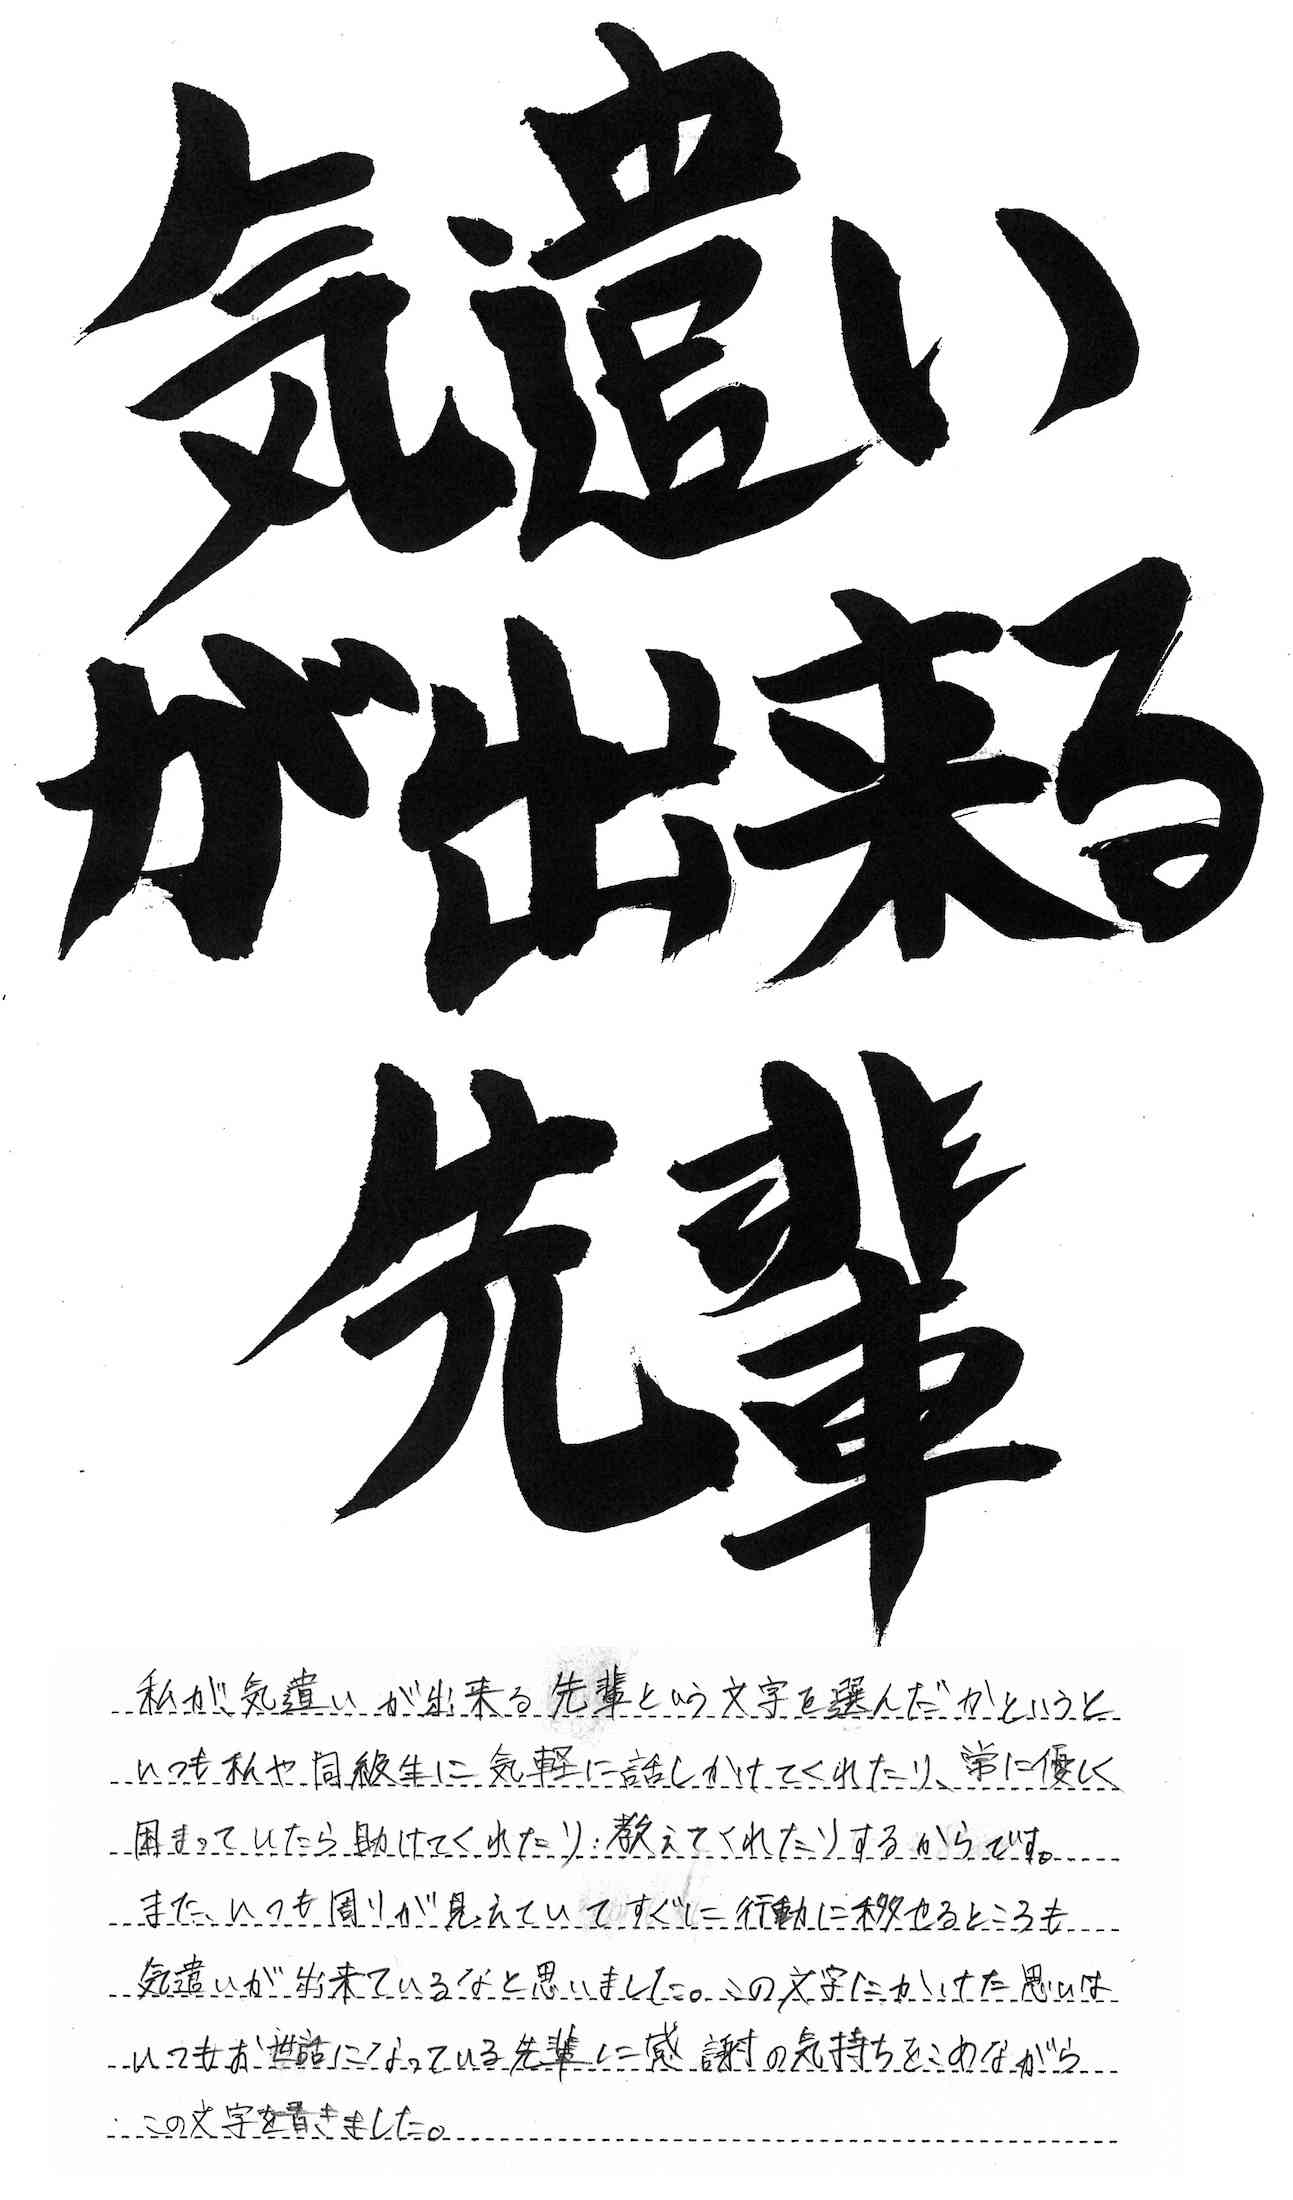 気遣い
が出来る
先輩
私が、気遣いが出来る先輩という文字を選んだかというと
いつも私や同級生に気軽に話しかけてくれたり、常に優しく
困まっていたら助けてくれたり、教えてくれたりするからです。
また、いつも周りが見えていてすぐに行動に移せるところも
気遣いが出来ているなと思いました。この文字にかけた思いは
いつもお世話になっている先輩に感謝の気持ちをこめながら
この文字を書きました。